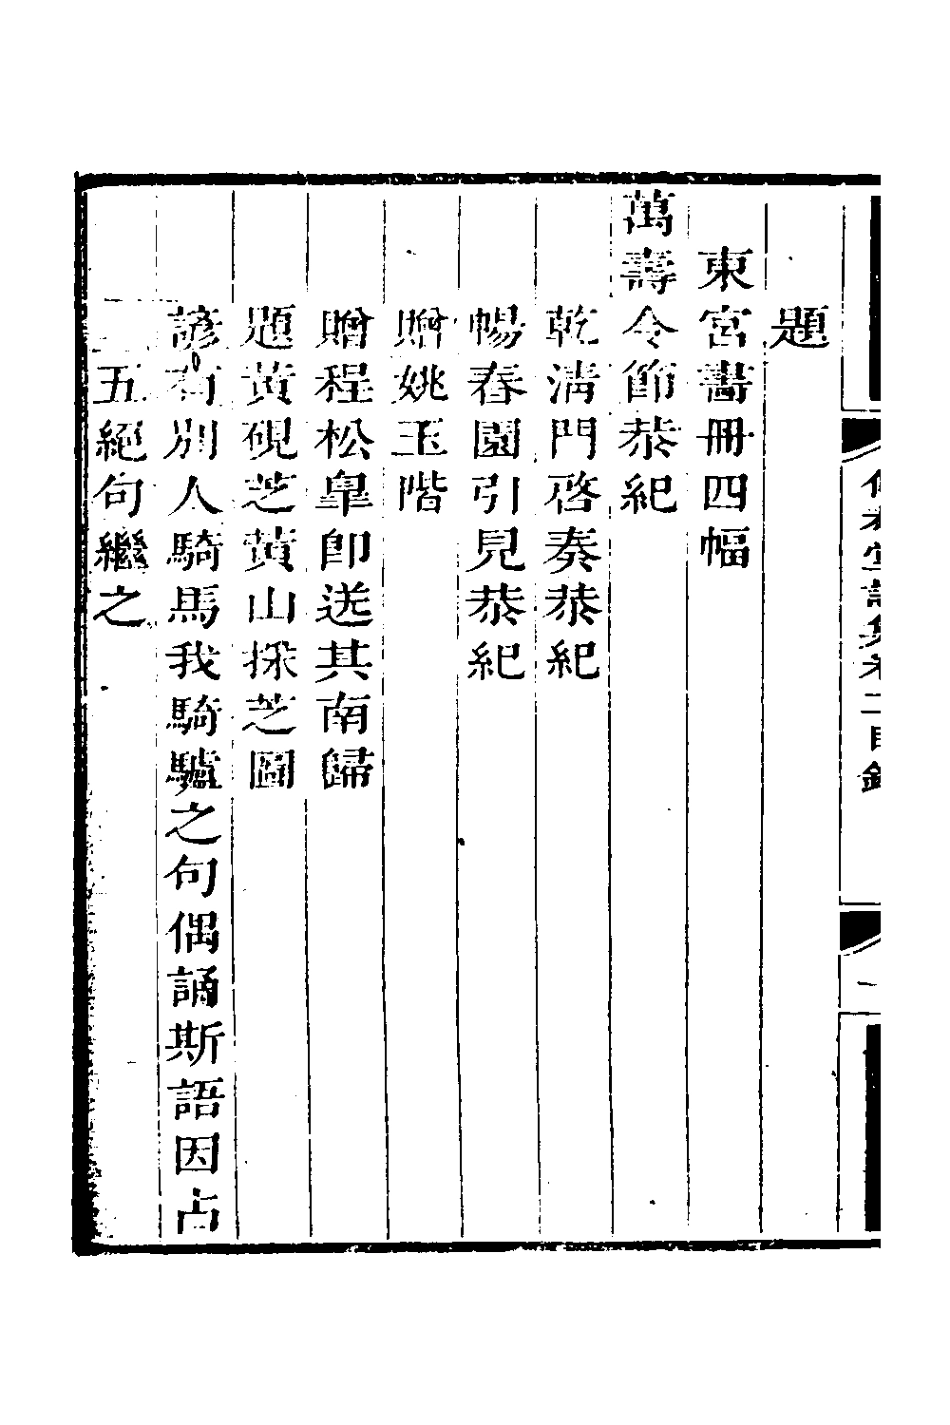 堂詩集卷二目錄
一
題
東宮畫冊四幅
萬壽令節恭紀
乾淸門啓奏恭紀
暢春園引見恭紀
贈姚玉階
贈程松皐卽送其南歸
題黃硯芝黃山採芝圖
諺有別人騎馬我騎驢之句偶誦斯語因占
五絕句繼之